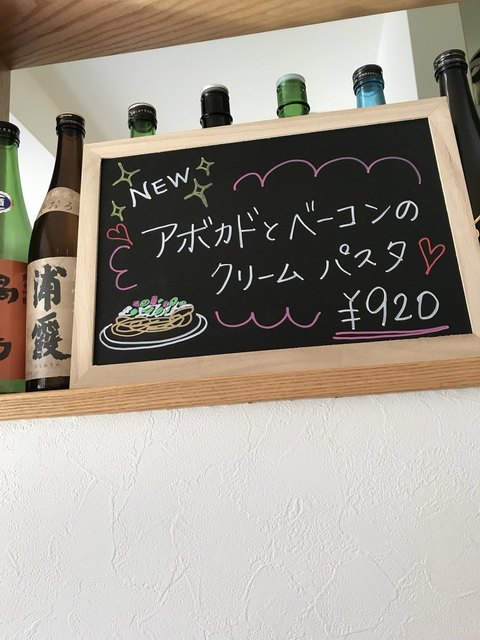 NEW
アボカドとベーコンの
クリームパスタ
¥920
浦霞